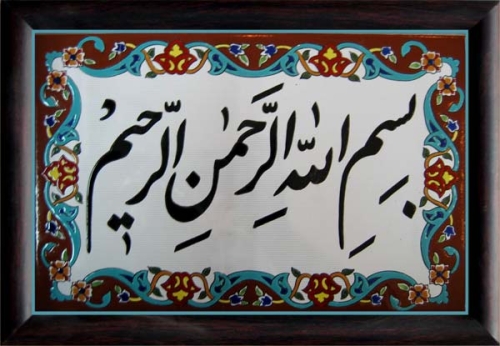 بِسمِ اللهِ الرَّحمٰنِ الرَّحیم